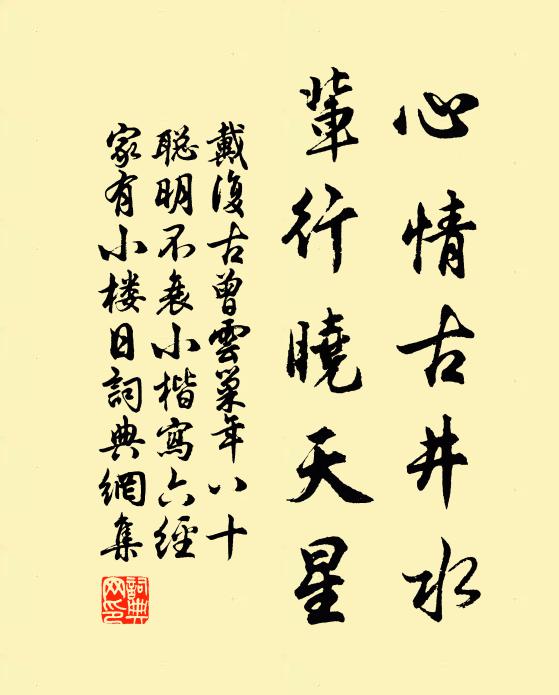 心情古井水
輩行曉天星
戴復古曾雲巢年八十
聡明不衰小楷寫六經
家有小楼日詞典網集
詞典網印